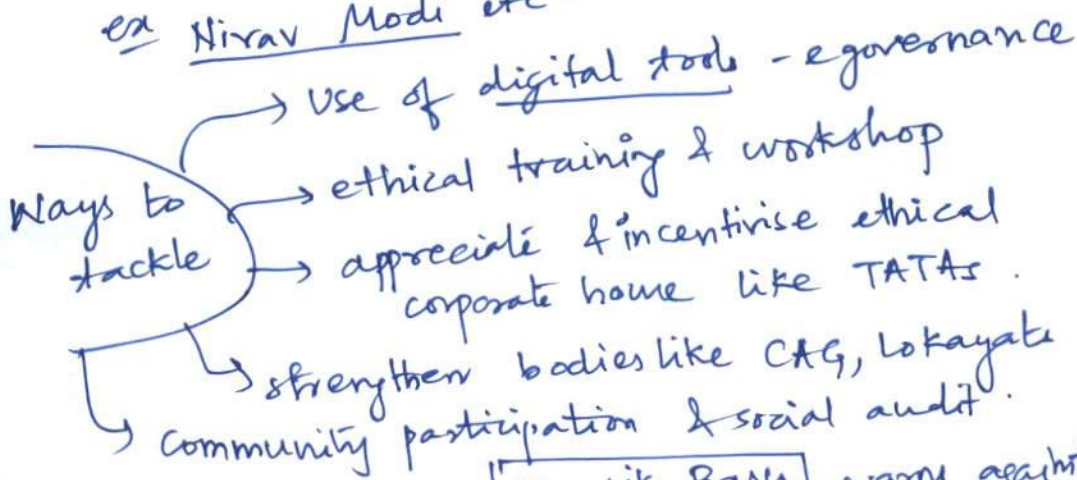 ex Nirav Modi etc
→ Use of digital tools - egovernance
Ways to tackle
→ ethical training & workshop
→ appreciate & incentivise ethical
corporate house like TATAs.
→ strengthen bodies like CAG, Lokayata
→ community participation & social audit.
against